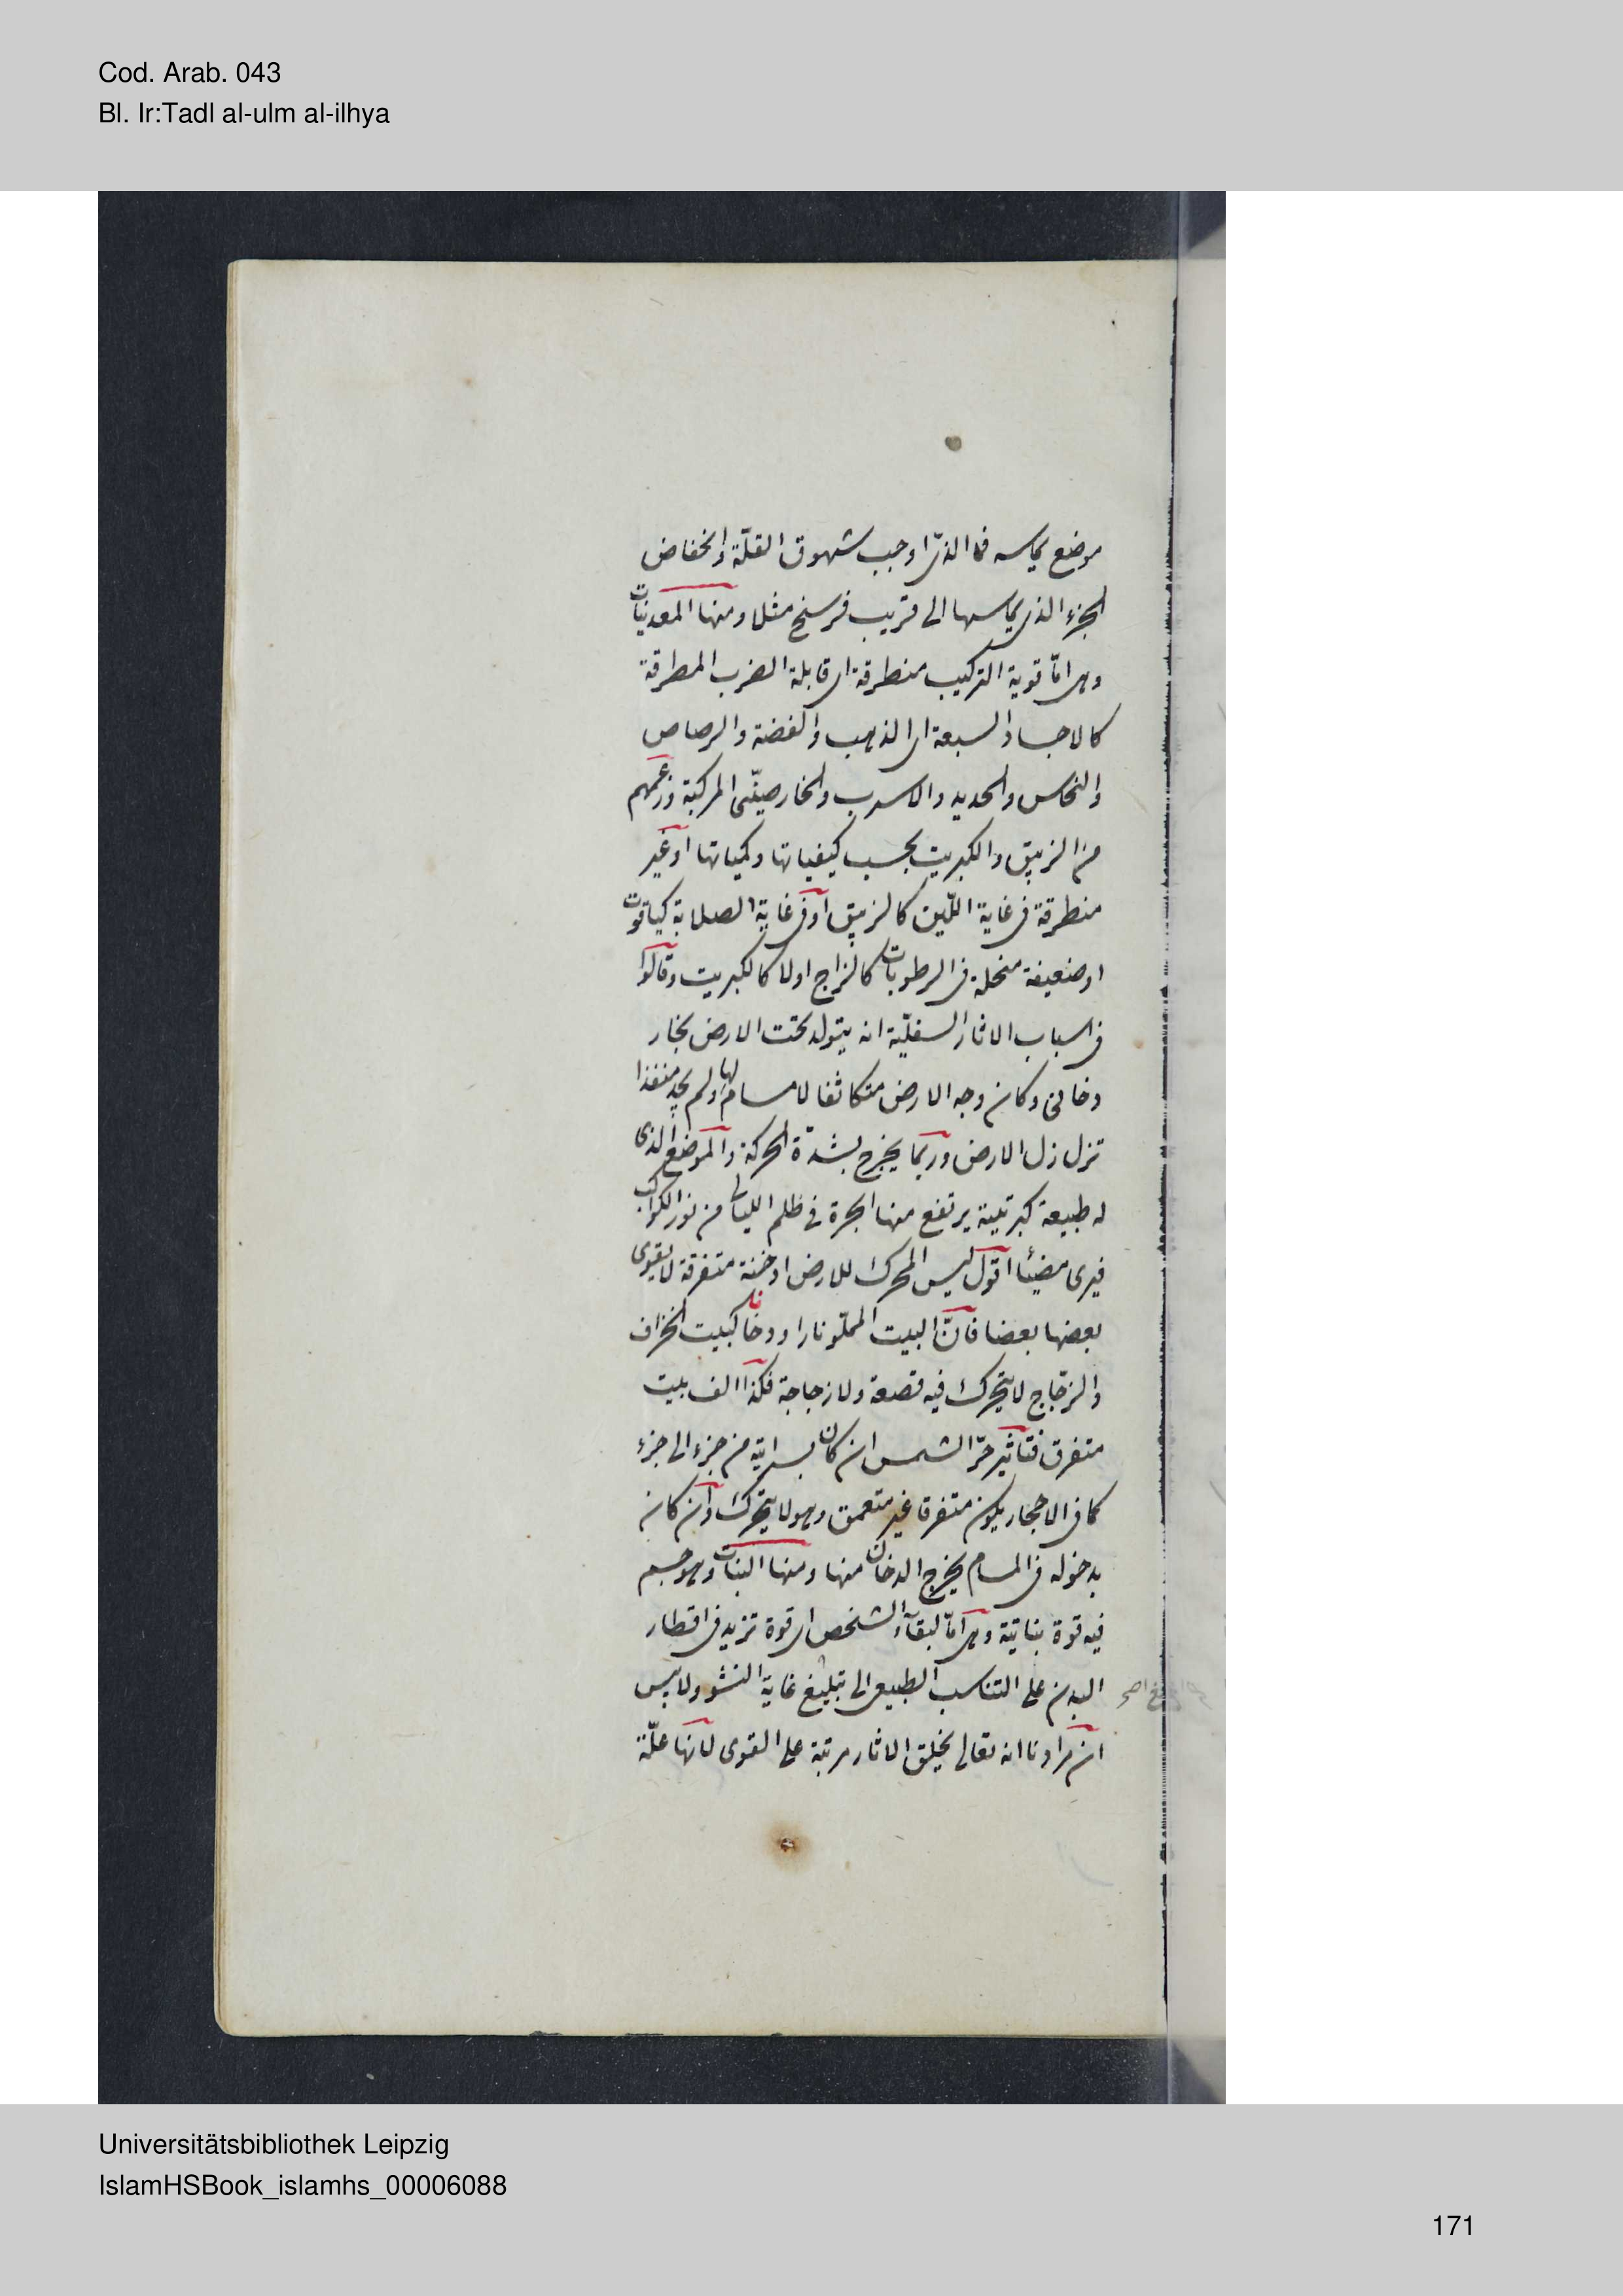 Cod. Arab. 043
Bl. Ir:Tadl al-ulm al-ilhya
موضع يماسه فما الذى اوجب شهوق القلّة وانخفاض
الجزء الذى يماسها الى قريب فرسخ مثلا ومنها المعدنيات
وهى امّا قوية التركيب منطرقة اى قابلة الضرب المطرقة
كالاجساد السبعة اى الذهب والفضة والرصاص
والنحاس والحديد والاسرب والخارصينى المركبة وزعمهم
من الزيبق والكبريت بحسب كيفياتها وكمياتها اوغير
منطرقة فى غاية اللّين كالزيبق اوفى غاية الصلابة كياقوت
اوضعيفة منحلة فى الرطوبات كالزاج اولا كالكبريت وقالوا
فى اسباب الاثار السفليّة انه يتولد تحت الارض بخار
دخانى وكان وجه الارض متكاثفا لامسام لها ولم يجد منفذا
تزلزل الارض وربما يخرج بشدّة الحركة والموضع الذى
له طبيعة كبرتيية يرتفع منها ابخرة فى ظلم الليالى من نور الكواكب
فيرى مضيئا اقول ليس المحرك للارض ادخنة متفرقة لايقوى
بعضها بعضا فانّ البيت المملّو نارا ودخانا كبيت الخزاف
والزجّاج لايتحرك فيه قصعة ولا زجاجة فكذا الف بيت
متفرق فتاثير حرّ الشمس ان كان بسرايته من جزء الى جزء
كما فى الاحجار يكون متفرقا غير متعمق وهو لايتحرك وان كان
بدخوله فى المسام يخرج الدخان منها ومنها النبات وهو جسم
فيه قوة نباتية وهى امّا لبقاء الشخص اى قوة تزيد فى اقطار
البدن على التناسب الطبيعى الى تبليغ غاية النشو ولايس
ان مرادنا انه تعالى يخلق الاثار مرتبة على القوى لانها علّة
Universitätsbibliothek Leipzig
IslamHSBook_islamhs_00006088
171